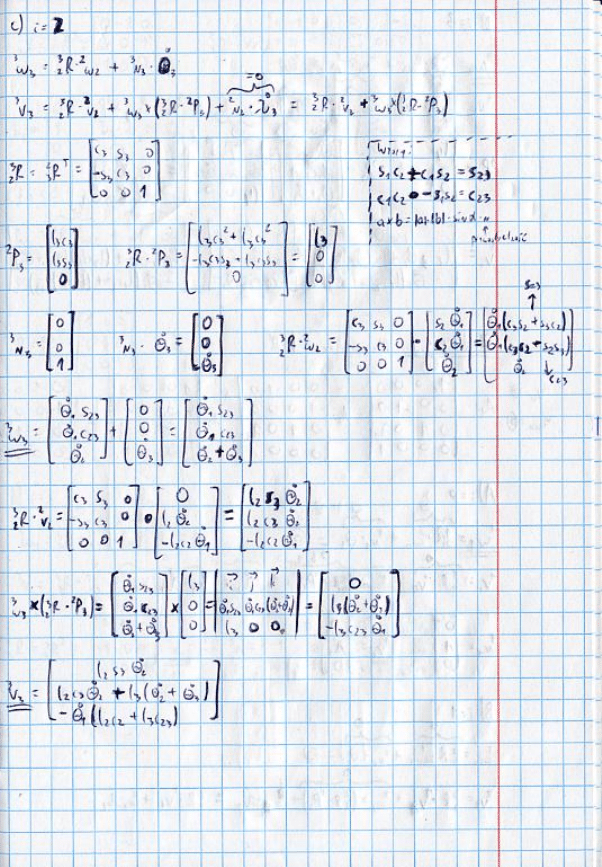 c) i=2
³ω₃ = ³₂R·²ω₂ + ³N₃·θ̇₃
³V₃ = ³₂R·²V₂ + ³ω₃×(³₂R·²P₃) + ²N₂·λ̇₃ = ³₂R·²V₂ + ³ω₃×(³₂R·²P₃)
=0
³₂R = ²₃Rᵀ = [c₃ s₃ 0; -s₃ c₃ 0; 0 0 1]
s₁c₂ + c₁s₂ = s₂₃
c₁c₂ - s₁s₂ = c₂₃
a×b = |a|·|b|·sinα·n
²P₃ = [l₃c₃; l₃s₃; 0] ³₂R·²P₃ = [l₃c₃² + l₃c₃²; -l₃c₃s₃ + l₃c₃s₃; 0] = [l₃; 0; 0]
³N₃ = [0; 0; 1] ³N₃·θ̇₃ = [0; 0; θ̇₃] ³₂R·²ω₂ = [c₃ s₃ 0; -s₃ c₃ 0; 0 0 1]·[s₂θ̇₁; c₂θ̇₁; θ̇₂] = [θ̇₁(c₃s₂ + s₃c₂); θ̇₁(c₃c₂ - s₂s₃); θ̇₂]
s₂₃
c₂₃
³ω₃ = [θ̇₁s₂₃; θ̇₁c₂₃; θ̇₂] + [0; 0; θ̇₃] = [θ̇₁s₂₃; θ̇₁c₂₃; θ̇₂ + θ̇₃]
³₂R·²V₂ = [c₃ s₃ 0; -s₃ c₃ 0; 0 0 1]·[0; l₂θ̇₂; -l₂c₂θ̇₁] = [l₂s₃θ̇₂; l₂c₃θ̇₂; -l₂c₂θ̇₁]
³ω₃×(³₂R·²P₃) = [θ̇₁s₂₃; θ̇₁c₂₃; θ̇₂+θ̇₃] × [l₃; 0; 0] = |i⃗ j⃗ k⃗; θ̇₁s₂₃ θ̇₁c₂₃ (θ̇₂+θ̇₃); l₃ 0 0| = [0; l₃(θ̇₂+θ̇₃); -l₃c₂₃θ̇₁]
³V₃ = [l₂s₃θ̇₂; l₂c₃θ̇₂ + l₃(θ̇₂ + θ̇₃); -θ̇₁(l₂c₂ + l₃c₂₃)]